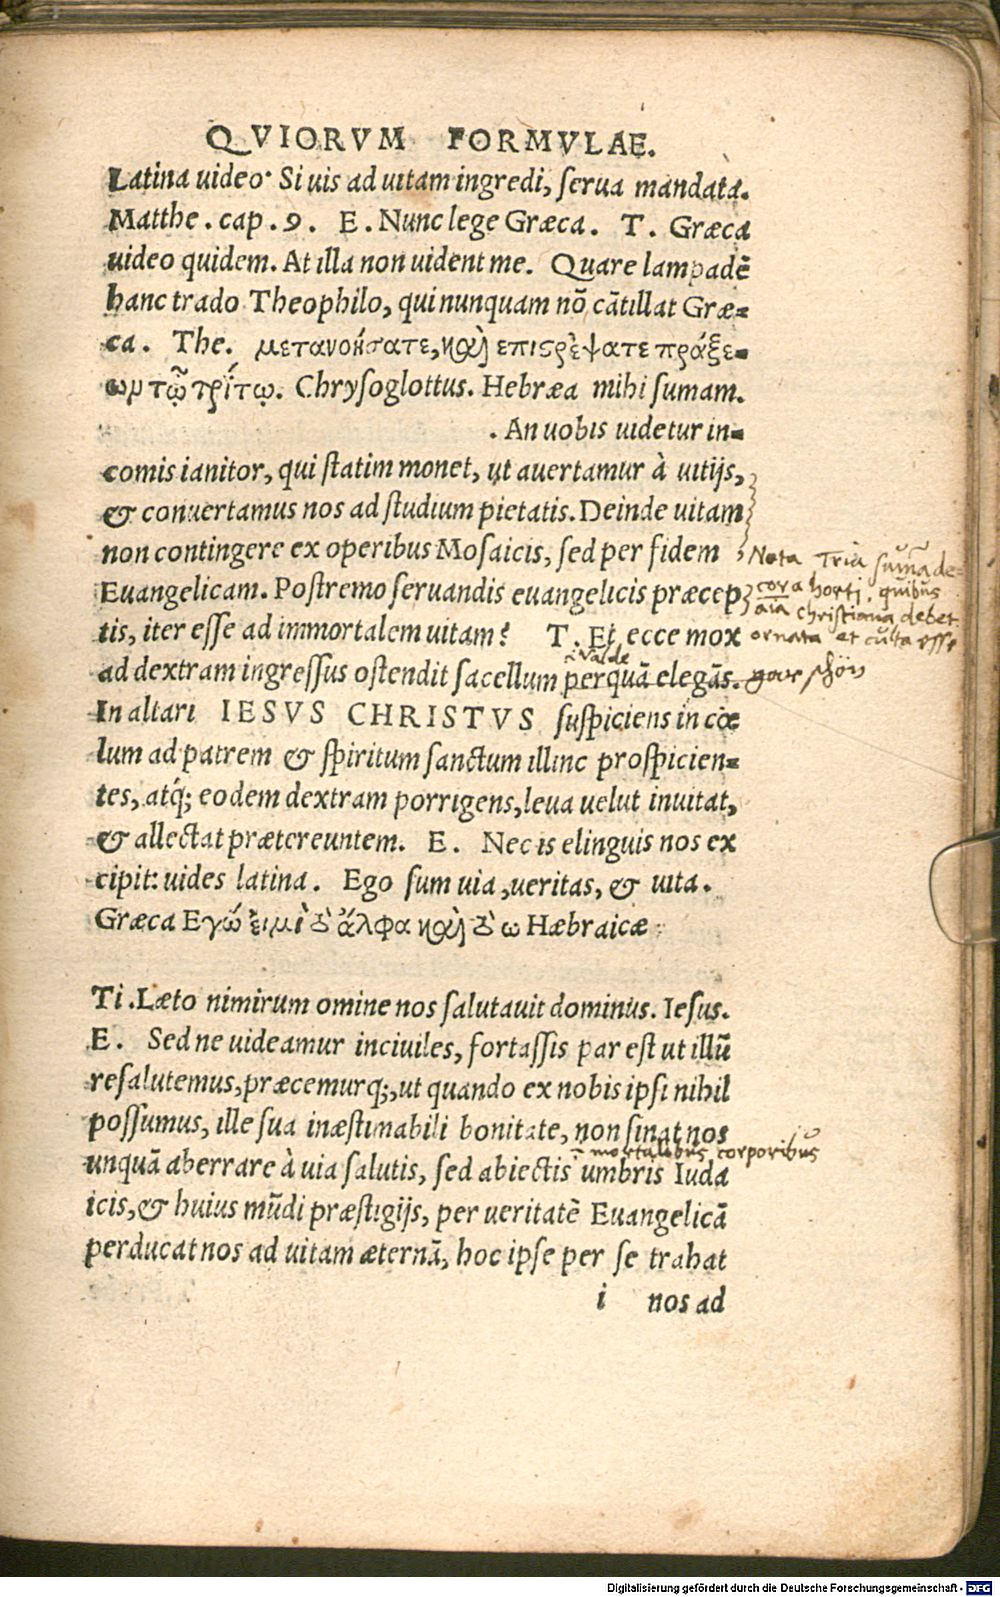 QVIORVM FORMVLAE.
Latina video· Si uis ad uitam ingredi, serua mandata.
Matthe. cap. 9. E. Nunc lege Græca. T. Græca
uideo quidem. At illa non uident me. Quare lampadē
hanc trado Theophilo, qui nunquam nō cātillat Græ-
ca. The. μετανοήσατε, καὶ επιστρέψατε πράξε-
ωμ τῷ τρίτῳ. Chrysoglottus. Hebræa mihi sumam.
. An uobis uidetur in-
comis ianitor, qui statim monet, ut auertamur à uitijs,
& conuertamus nos ad studium pietatis. Deinde uitam
non contingere ex operibus Mosaicis, sed per fidem
Euangelicam. Postremo seruandis euangelicis præcep
tis, iter esse ad immortalem uitam? T. Et ecce mox
ad dextram ingressus ostendit sacellum perquā elegās.
In altari IESVS CHRISTVS suspiciens in cœ
lum ad patrem & spiritum sanctum illinc prospicien-
tes, atq; eodem dextram porrigens, leua uelut inuitat,
& allectat prætereuntem. E. Nec is elinguis nos ex
cipit: uides latina. Ego sum uia, ueritas, & uita.
Græca Εγώ ἐιμὶ τὸ ἄλφα καὶ τὸ ω Hæbraicæ
Ti. Læto nimirum omine nos salutauit dominus. Iesus.
E. Sed ne uideamur inciuiles, fortassis par est ut illū
resalutemus, præcemurq;, ut quando ex nobis ipsi nihil
possumus, ille sua inæstimabili bonitate, non sinat nos
unquā aberrare à uia salutis, sed abiectis umbris Iuda
icis, & huius mūdi præstigijs, per ueritatē Euangelicā
perducat nos ad uitam æternā, hoc ipse per se trahat
i nos ad
Nota Tria sum̄a de-
cora horti. quibus
aīa christiana debet
ornata et culta esse
valde
gar schön
mortalibus corporibus
Digitalisierung gefördert durch die Deutsche Forschungsgemeinschaft - DFG